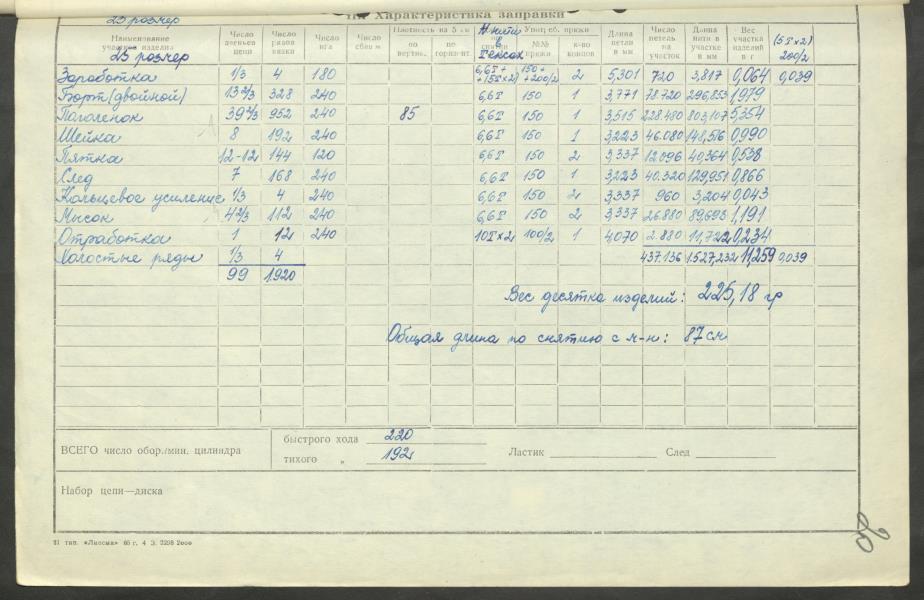 25 размер
III Характеристика заправки
Наименование участков изделия Число звеньев цепи Число рядов вязки Число игл Число сбавок Плотность на 5 см по вертик. по горизонт. № нити в тексах Употреб. пряжи №№ пряжи к-во концов Длина петли в мм Число петель на участок Длина нити в участке в мм Вес участка изделия в г (5Tx2) 200/2
25 размер
Заработка 1/3 4 180 6,6T + +(5Tx2) 150+ +200/2 2 5,301 720 3,817 0,064 0,039
Борт (двойной) 13 2/3 328 240 6,6T 150 1 3,771 78.720 296,853 1,979
Паголенок 39 2/3 952 240 85 6,6T 150 1 3,515 228.480 803,107 5,354
Шейка 8 192 240 6,6T 150 1 3,223 46.080 148,516 0,990
Пятка 12-12 144 120 6,6T 150 2 3,337 12.096 40,364 0,538
След 7 168 240 6,6T 150 1 3,223 40.320 129,951 0,866
Кольцевое усиление 1/3 4 240 6,6T 150 2 3,337 960 3,204 0,043
Мысок 4 2/3 112 240 6,6T 150 2 3,337 26.880 89,698 1,191
Отработка 1 12 240 10Tx2 100/2 1 4,070 2.880 11,722 0,234
Холостые ряды 1/3 4 437.136 1.527,232 11,259 0,039
99 1.920
Вес десятка изделий: 225,18 гр
Общая длина по снятию с м-н: 87 см
ВСЕГО число обор./мин. цилиндра быстрого хода 220
тихого „ 192 Ластик След
Набор цепи—диска
11 тип. «Лиесма» 65 г. 4 З. 3298 2000
20